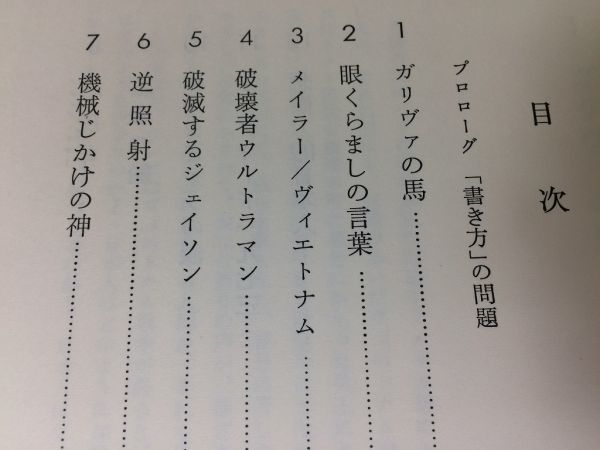 目次
プロローグ 「書き方」の問題
1 ガリヴァの馬
2 眼くらましの言葉
3 メイラー/ヴィエトナム
4 破壊者ウルトラマン
5 破滅するジェイソン
6 逆照射
7 機械じかけの神